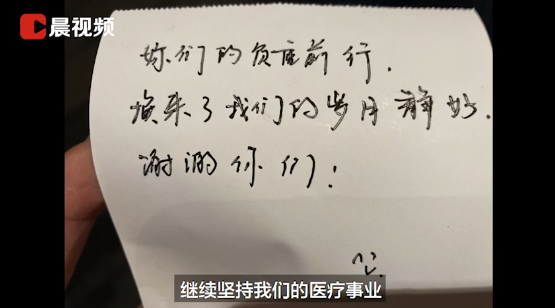 晨视频
你们的负重前行.
换来了我们的岁月静好.
谢谢你们!
继续坚持我们的医疗事业